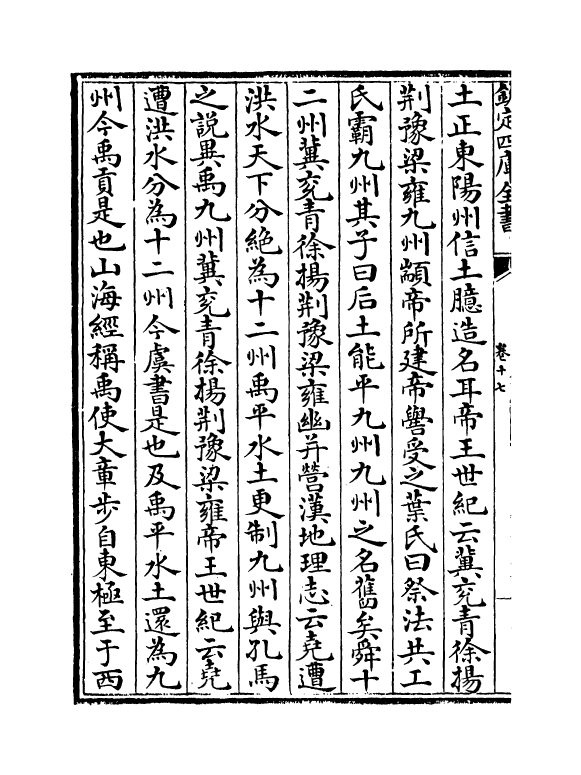 欽定四庫全書
卷十七
土正東陽州信土臆造名耳帝王世紀云冀兖青徐揚
荆豫梁雍九州顓帝所建帝嚳受之葉氏曰祭法共工
氏霸九州其子曰后土能平九州九州之名舊矣舜十
二州冀兖青徐揚荆豫梁雍幽并營漢地理志云堯遭
洪水天下分絶為十二州禹平水土更制九州與孔馬
之説異禹九州冀兖青徐揚荆豫梁雍帝王世紀云堯
遭洪水分為十二州今虞書是也及禹平水土還為九
州今禹貢是也山海經稱禹使大章步自東極至于西